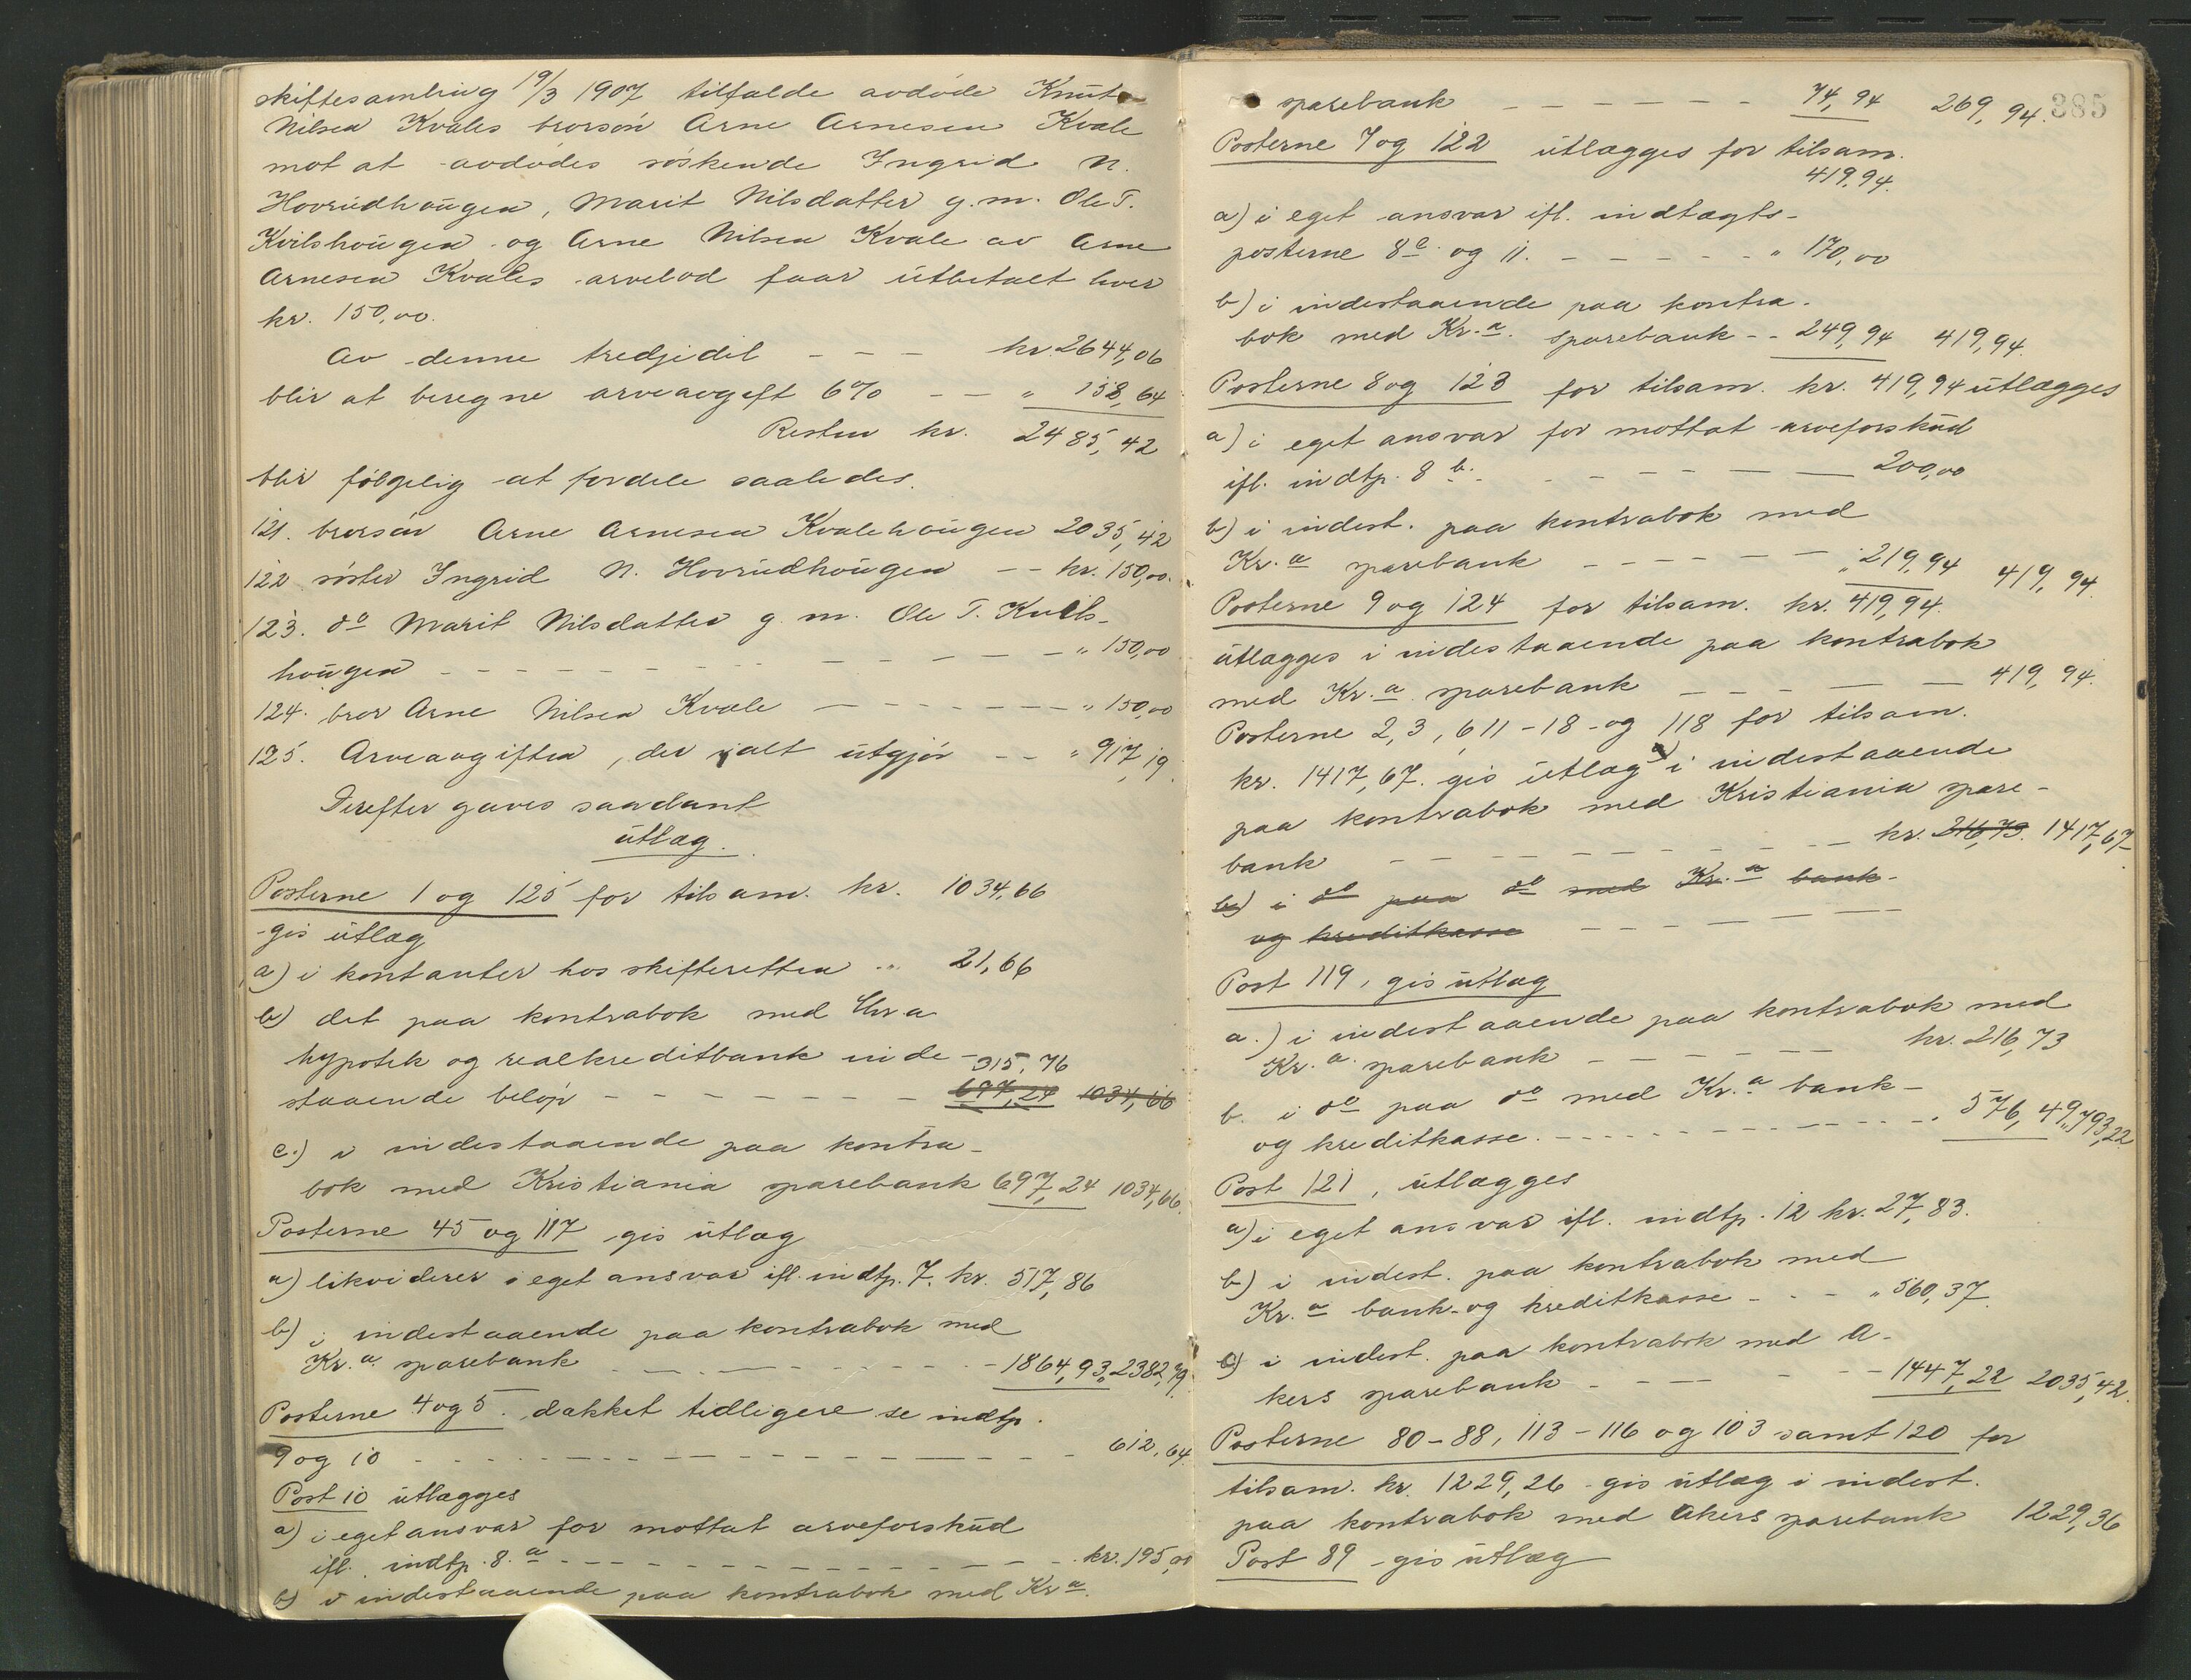 skiftesamling 19/3 1907 tilfaldt avdöde Knut
Nilsen Kvales brorsön Arne Arnesen Kvale
mot at avdödes söskende Ingrid N.
Hovrudhaugen, Marit Nilsdatter g.m. Ole T.
Kvilshaugen og Arne Nilsen Kvale av Arne
Arnesen Kvales arvelod faar utbetalt hver
kr. 150,00.
Av denne tredjedel - - - kr. 2644,06
blir at beregne arveavgift 6% - - " 158,64
Resten kr. 2485,42
blir fölgelig at fordele saaledes.
121. brorsön Arne Arnesen Kvalehaugen 2035,42
122 söster Ingrid N. Hovrudhougen - - kr. 150,00.
123. do Marit Nilsdatter g. m. Ole T. Kvils-
hougen - - - - - - - - - " 150,00
124. bror Arne Nilsen Kvale - - - - - - " 150,00
125. Arveavgiften, der ialt utgjör - - " 917,19.
Derefter gaves saadant
utlæg.
Posterne 1 og 125 for tilsam. kr. 1034,66
gis utlæg
a) i kontanter hos skifteretten .. 21,66
b) det paa kontrabok med Chra
hypotek og realkreditbank inde- 315,76
staaende belöp - - - - - - - 697,24 1034,66
c.) i indestaaende paa kontra-
bok med Kristiania sparebank 697,24 1034,66.
Posterne 45 og 117 gis utlæg
a) likviderer i eget ansvar ifl. indtp. 7. kr. 517,86
b) i indestaaende paa kontrabok med
Kr.a sparebank - - - - - - - 1864,93 " 2382,79.
Posterne 4 og 5. dækket tidligere se indtp.
9 og 10 - - - - - - - - - - - - 612,64.
Post 10 utlægges
a) i eget ansvar for mottat arveforskud
ifl. indtp. 8.a - - - - - - - - - kr. 195,00
b) i indestaaende paa kontrabok med Kr a.
385
sparebank - - - - - - 74,94 269,94.
Posterne 7 og 122 utlægges for tilsam.
419,94.
a) i eget ansvar ifl. indtægts-
posterne 8c og 11. - - - - - " 170,00
b) i indestaaende paa kontra-
bok med Kr.a. sparebank - - 249,94 419,94.
Posterne 8 og 123 for tilsam. kr. 419,94 utlægges
a) i eget ansvar for mottat arveforskud
ifl. indtp. 8 b. - - - - - 200,00
b) i indest. paa kontrabok med
Kr.a sparebank - - - - - " 219,94 419,94.
Posterne 9 og 124 for tilsam. kr. 419,94.
utlægges i indestaaende paa kontrabok
med Kr.a sparebank - - - - - 419,94.
Posterne 2, 3, 6, 11-18 og 118 for tilsam.
kr. 1417,67. gis utlæg a) i indestaaende
paa kontrabok med Kristiania spare-
bank - - - - - - - - kr. 216,73. 1417,67
b) i do paa do med Kr.a bank-
og kreditkasse - - - - -
Post 119, gis utlæg
a.) i indestaaende paa kontrabok med
Kr.a. sparebank - - - - - kr. 216,73
b. i do paa do med Kr.a bank-
og kreditkasse. - - - - - - - - " 576,49 " 793,22
Post 121, utlægges
a) i eget ansvar ifl. indtp. 12 kr. 27,83.
b) i indest. paa kontrabok med
Kr.a bank- og kreditkasse - - - " 560,37.
c) i indest. paa kontrabok med A-
kers sparebank - - - - - - 1447,22 2035,42.
Posterne 80-88, 113-116 og 103 samt 120 for
tilsam. kr. 1229,26 gis utlæg i indest.
paa kontrabok med Akers sparebank 1229,36
Post 89 gis utlæg